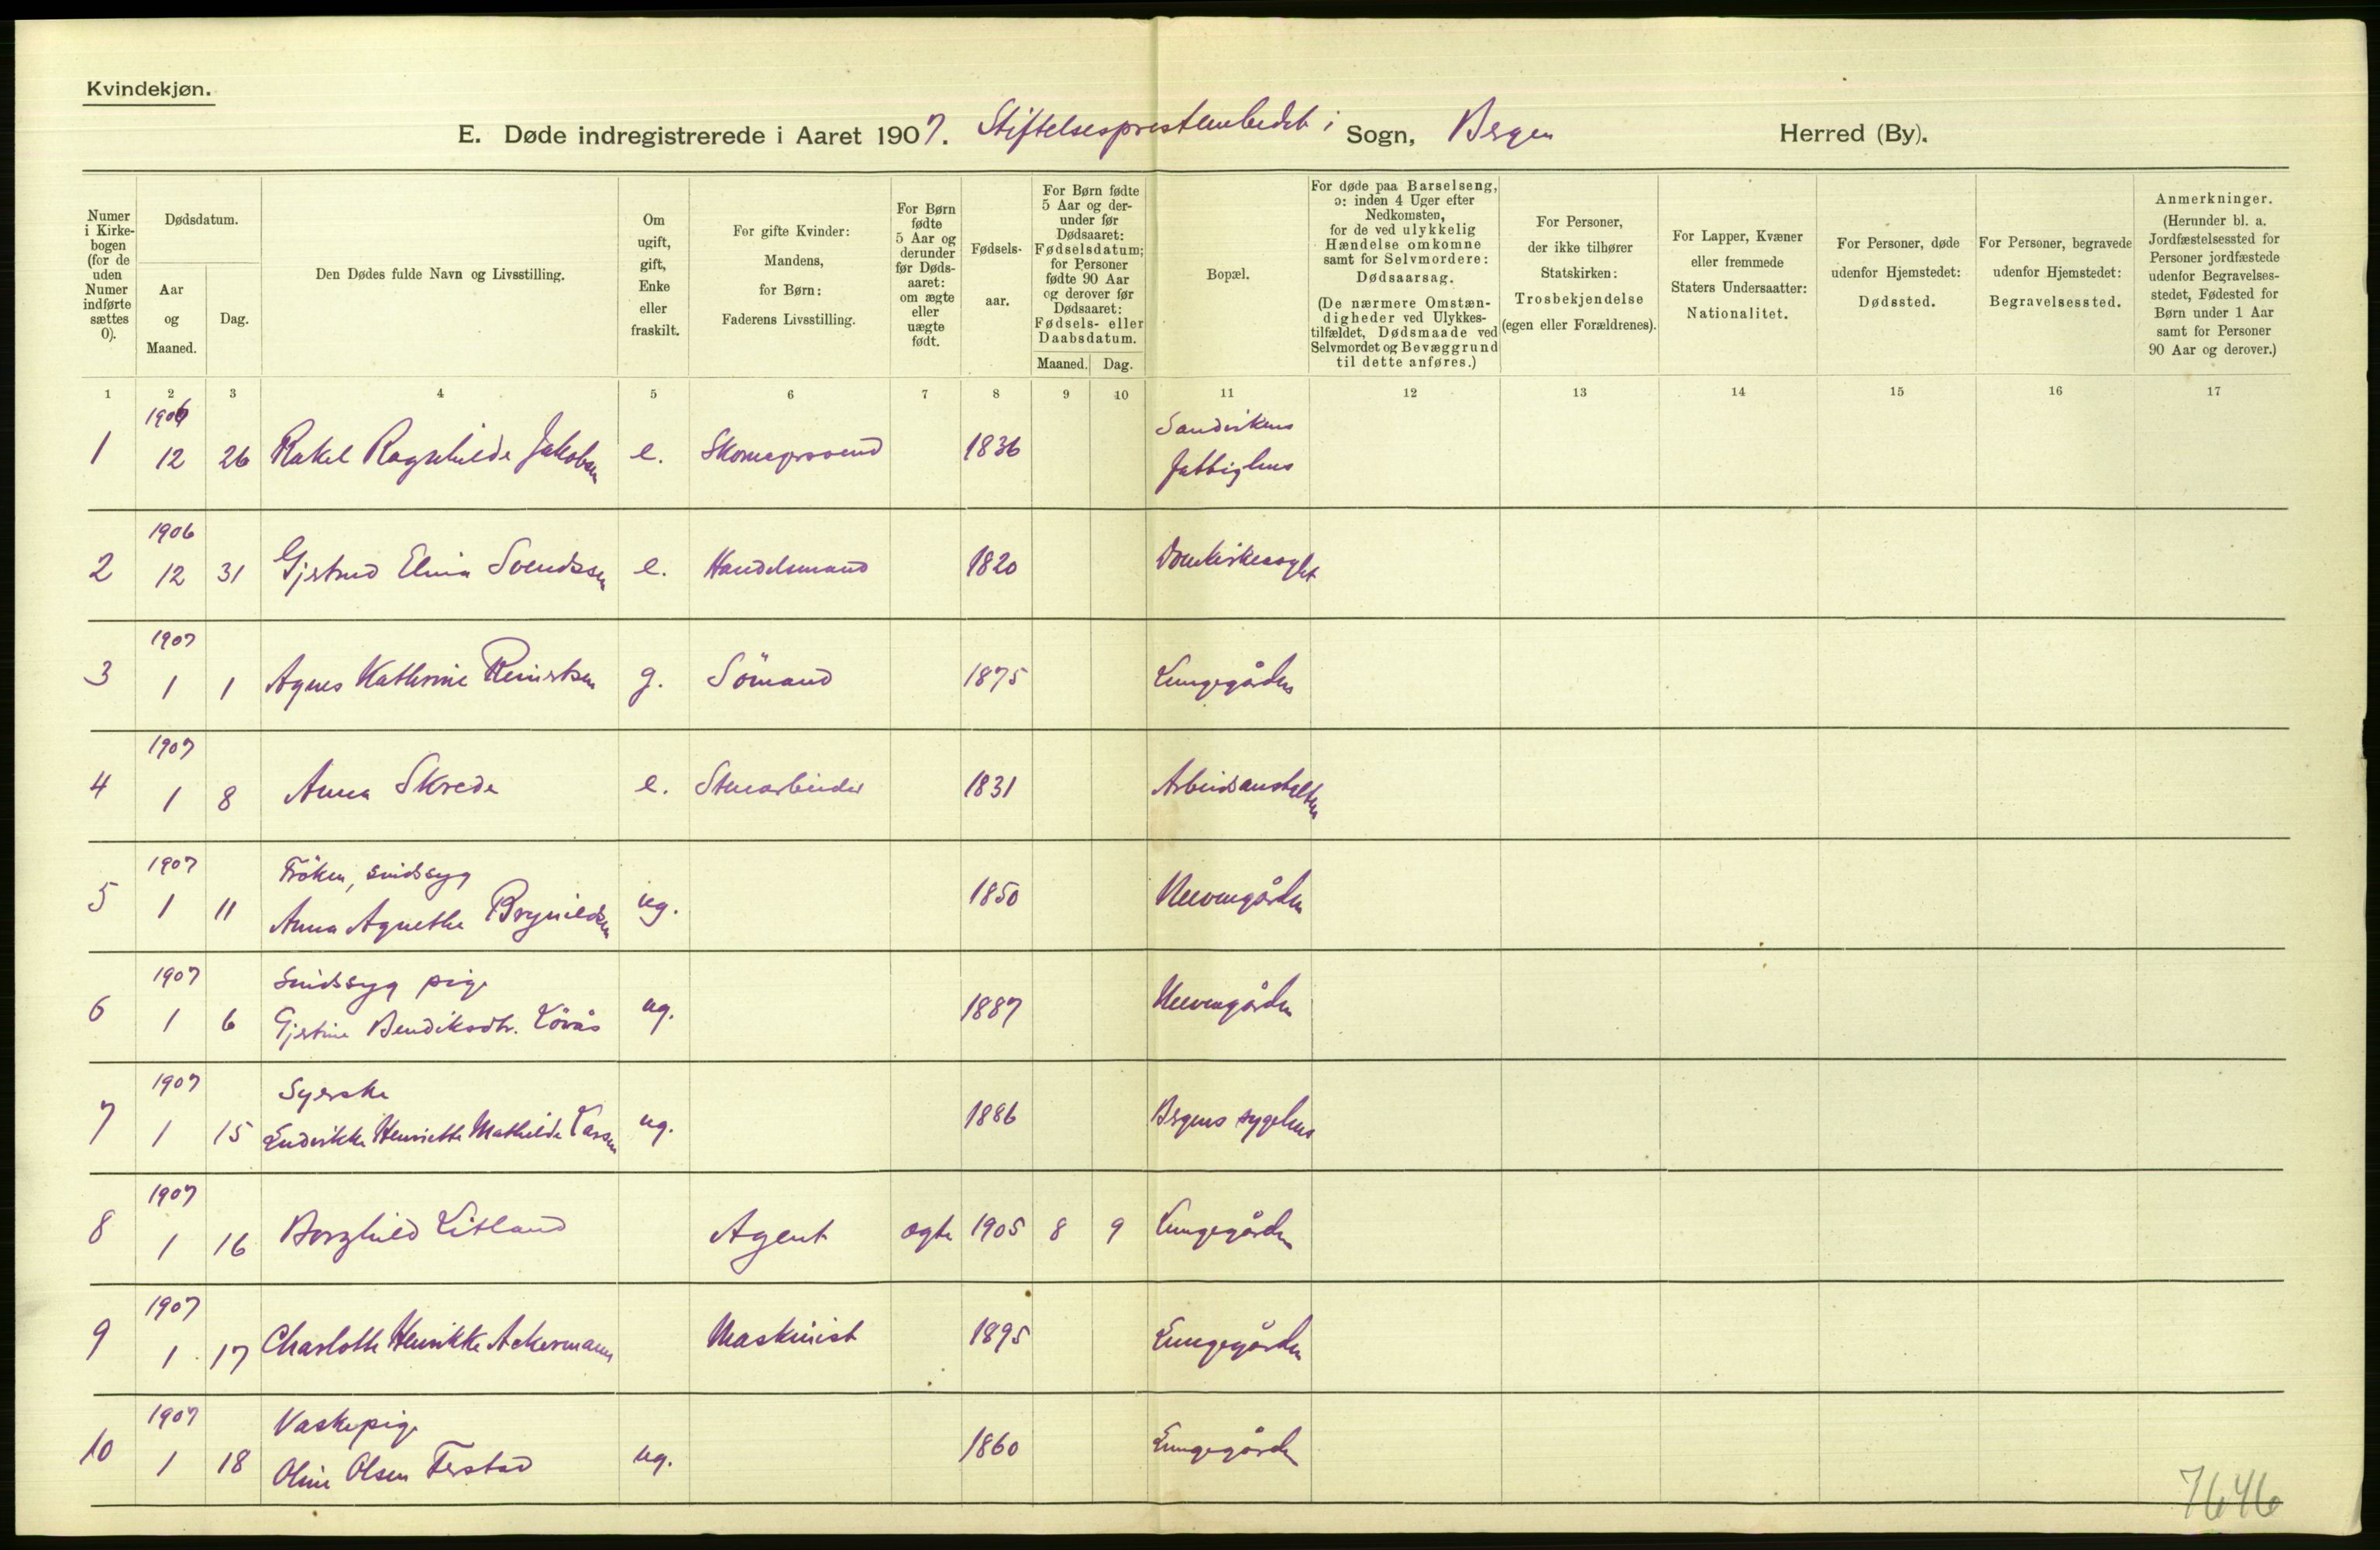 Kvindekjøn.
E. Døde indregistrerede i Aaret 1907. Stiftelsesprestembedet i Sogn, Bergen Herred (By).
Numer i Kirkebogen (for de uden Numer indførte sættes 0).
Dødsdatum.
Aar og Maaned.
Dag.
Den Dødes fulde Navn og Livsstilling.
Om ugift, gift, Enke eller fraskilt.
For gifte Kvinder: Mandens, for Børn: Faderens Livsstilling.
For Børn fødte 5 Aar og derunder før Dødsaaret: om ægte eller uægte født.
Fødselsaar.
For Børn fødte 5 Aar og derunder før Dødsaaret: Fødselsdatum; for Personer fødte 90 Aar og derover før Dødsaaret: Fødsels- eller Daabsdatum.
Maaned. Dag.
Bopæl.
For døde paa Barselseng, ɔ: inden 4 Uger efter Nedkomsten, for de ved ulykkelig Hændelse omkomne samt for Selvmordere: Dødsaarsag.
(De nærmere Omstændigheder ved Ulykkestilfældet, Dødsmaade ved Selvmordet og Bevæggrund til dette anføres.)
For Personer, der ikke tilhører Statskirken: Trosbekjendelse (egen eller Forældrenes).
For Lapper, Kvæner eller fremmede Staters Undersaatter: Nationalitet.
For Personer, døde udenfor Hjemstedet: Dødssted.
For Personer, begravede udenfor Hjemstedet: Begravelsessted.
Anmerkninger. (Herunder bl. a. Jordfæstelsessted for Personer jordfæstede udenfor Begravelsesstedet, Fødested for Børn under 1 Aar samt for Personer 90 Aar og derover.)
1 2 3 4 5 6 7 8 9 10 11 12 13 14 15 16 17
1906 Sandvikens
1 12 26 Rakel Ragnhilde Jakobsen e. 1836
1906
2 12 31 Gjertrud Elina Svendsen e. Handelsmand 1820
1907
3 1 1 Agnes Kathrine Reinertsen g. Sömand 1875 Lungegården
1907
4 1 8 Anna Skrede e. Stenarbeider 1831 Arbeidsanstalten
1907 Fröken, sindssyg
5 1 11 Anna Agnethe Brynildsen ug. 1850 Neevengården
1907 Sindssyg pige
6 1 6 Gjertine Bendiksdtr. Lövås ug. 1887 Neevengården
1907 Syerske
7 1 15 Ludvikke Henriette Mathilde Larsen ug. 1886 Bergens sygehus
1907
8 1 16 Borghild Litland Agent ægte 1905 8 9 Lungegården
1907
9 1 17 Charlotte Henrikke Ackermann Maskinist 1895 Lungegården
1907 Vaskepige
10 1 18 Oline Olsen Ferstad ug. 1860 Lungegården
7646